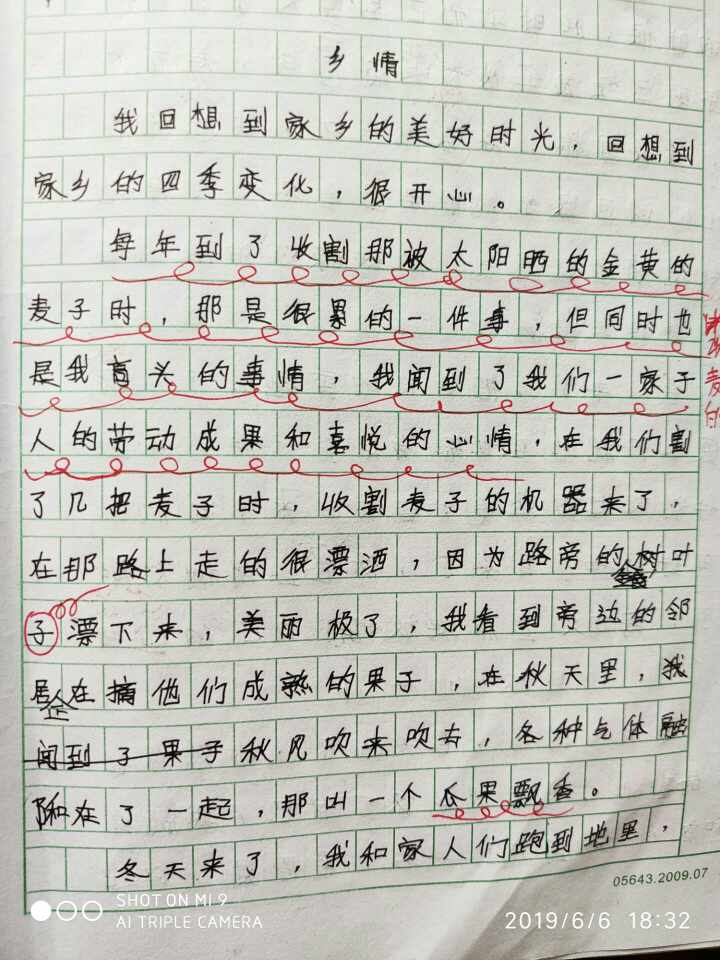 乡情
我回想到家乡的美好时光，回想到
家乡的四季变化，很开心。
每年到了收割那被太阳晒的金黄的
麦子时，那是很累的一件事，但同时也
是我盲头的事情，我闻到了我们一家子
人的劳动成果和喜悦的心情，在我们割
了几把麦子时，收割麦子的机器来了，
在那路上走的很漂洒，因为路旁的树叶
子漂下来，美丽极了，我看到旁边的邻
居在摘他们成熟的果子，在秋天里，我
闻到了果子秋风吹来吹去，各种气体融
和在了一起，那叫一个瓜果飘香。
冬天来了，我和家人们跑到地里，
05643.2009.07
SHOT ON MI 9
AI TRIPLE CAMERA
2019/6/6 18:32